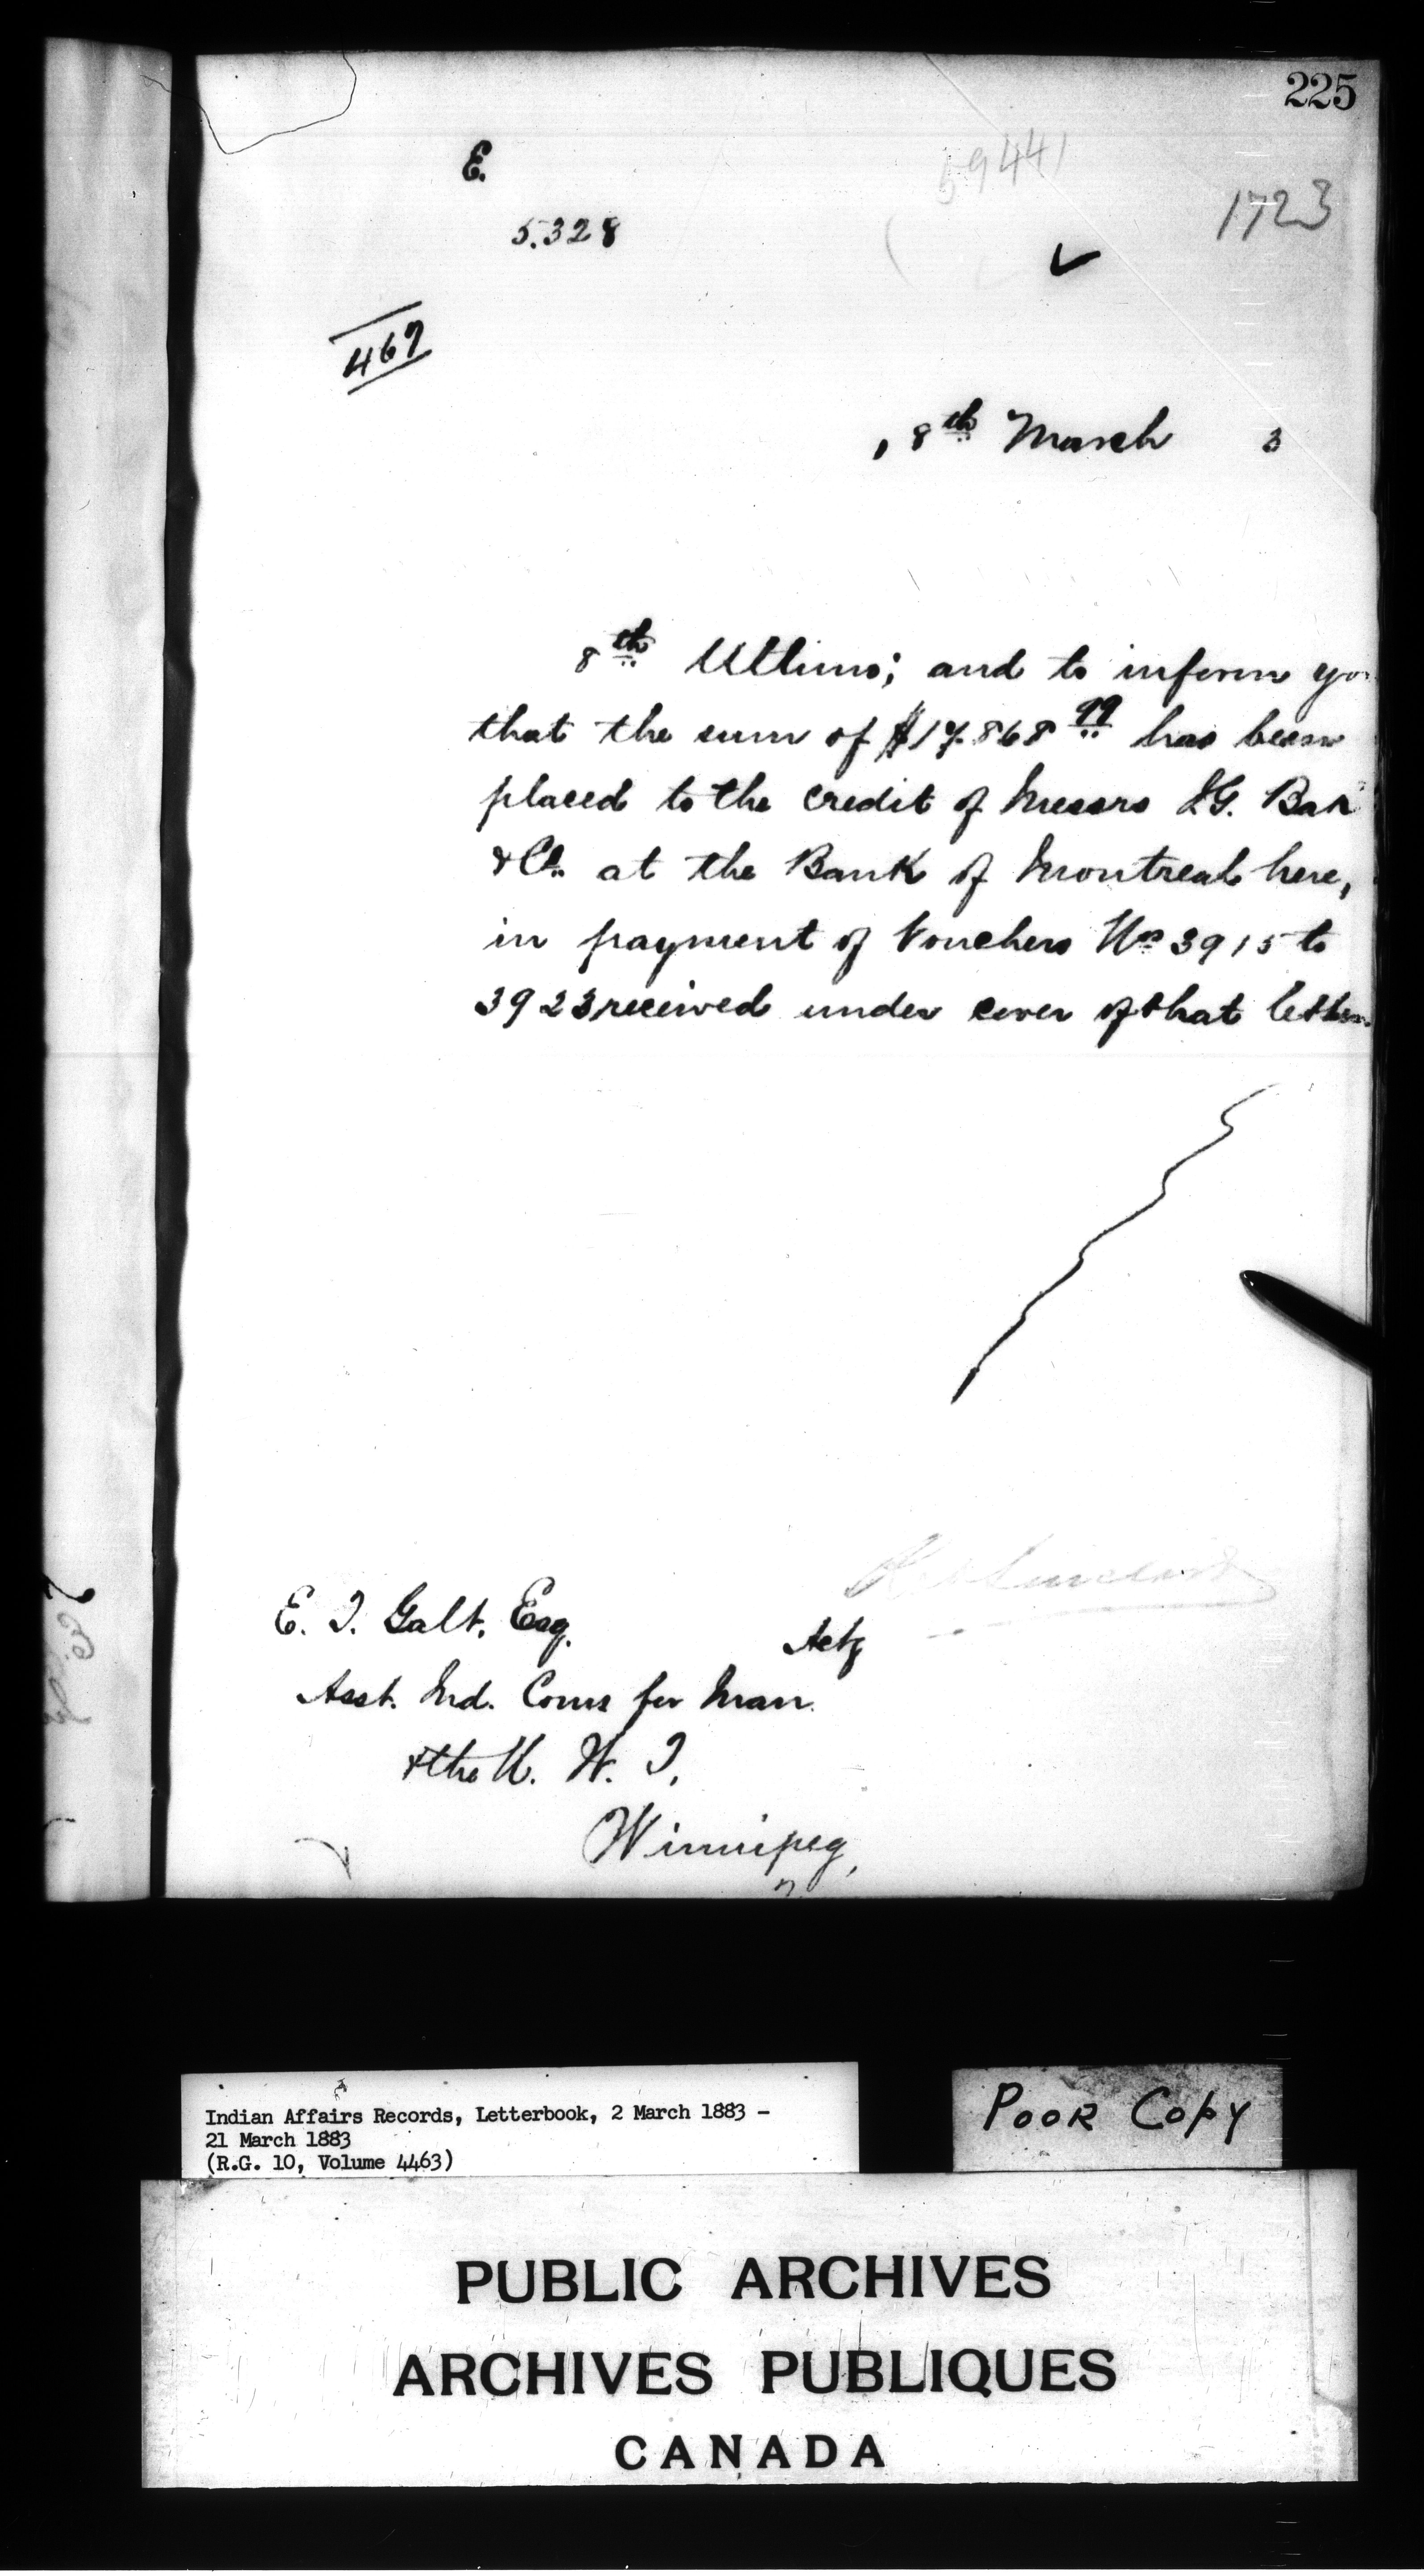 225
E.
59441
1723
5.328
467
, 8th March 3
8th Ultimo; and to inform you
that the sum of $17.868 99 has been
placed to the credit of Messrs I.G. Bak
& Co. at the Bank of Montreal here,
in payment of Vouchers Nos 3915 to
3923 received under cover of that letter.
E. T. Galt, Esq.
Actg
Asst. Ind. Coms for Man.
& the N. W. T.
Winnipeg,
Indian Affairs Records, Letterbook, 2 March 1883 -
21 March 1883
(R.G. 10, Volume 4463)
POOR COPY
PUBLIC ARCHIVES
ARCHIVES PUBLIQUES
CANADA